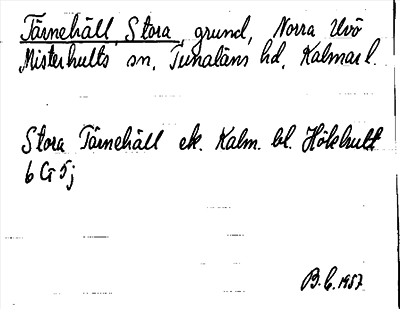 Tärnehäll, Stora, grund, Norra Uvö
Misterhults sn, Tunaläns hd, Kalmar l.
Stora Tärnehäll ek. Kalm. bl. Hökhult
6 G 5j
B.C. 1957